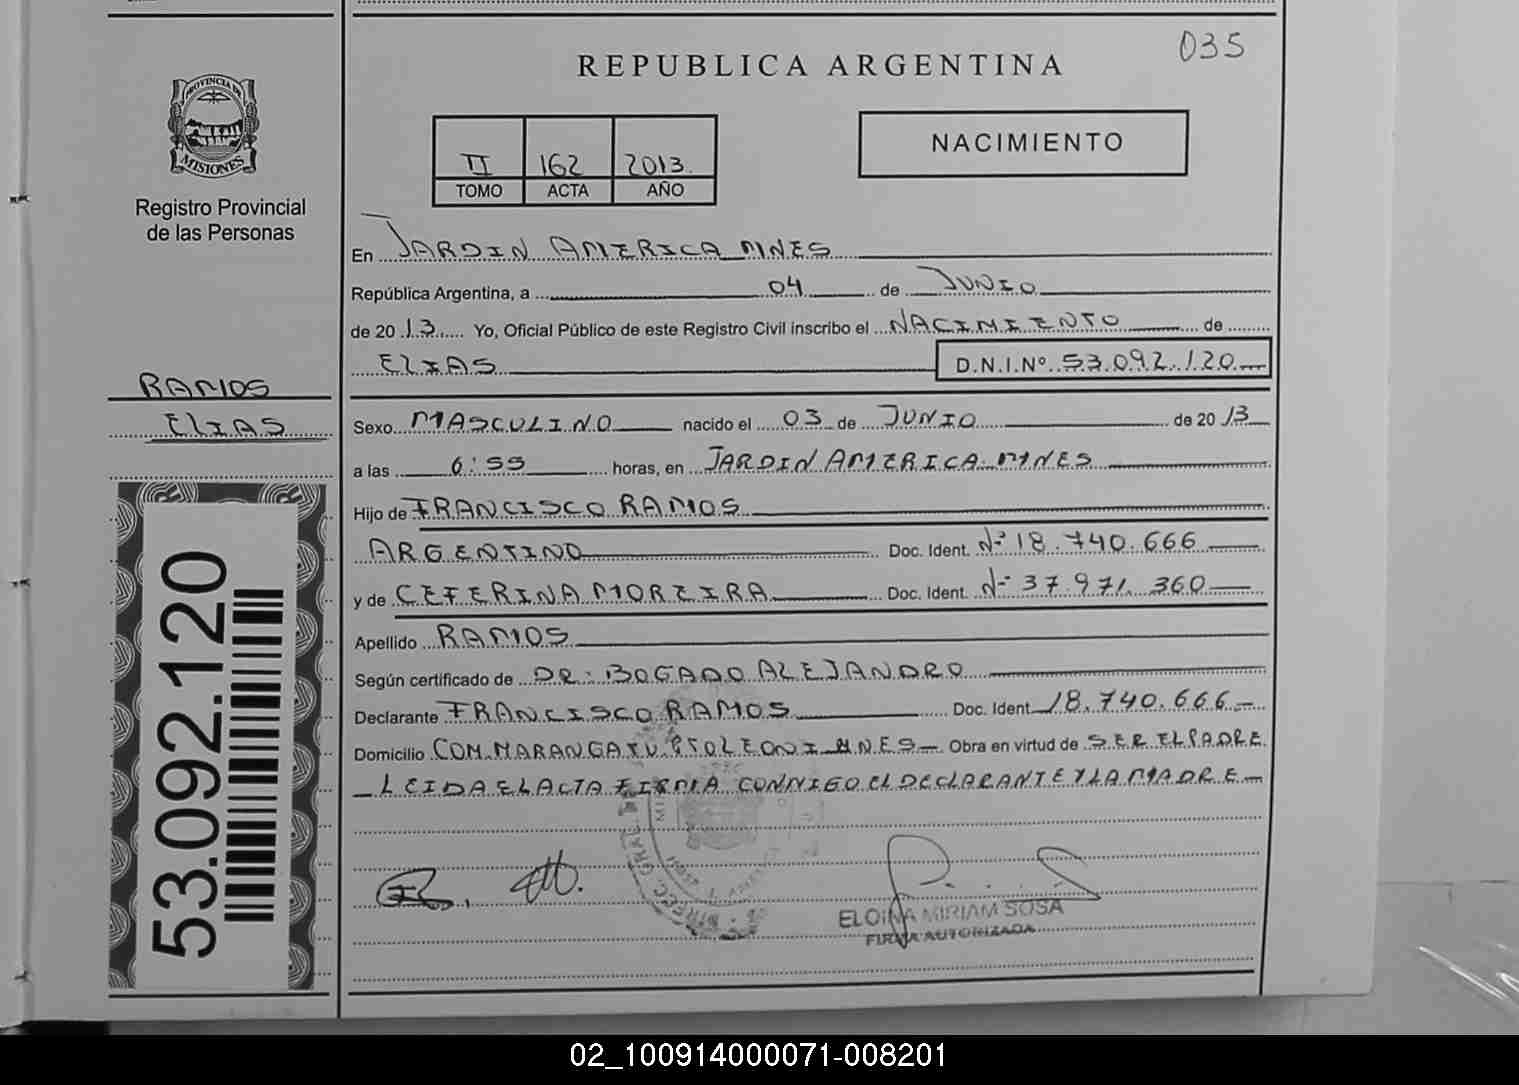 035
REPUBLICA ARGENTINA
PROVINCIA DE
MISIONES
Registro Provincial
de las Personas
II 162 2013.
TOMO ACTA AÑO
NACIMIENTO
En JARDIN AMERICA MNES
República Argentina, a 04 de JUNIO
de 20 13 Yo, Oficial Público de este Registro Civil inscribo el NACIMIENTO de
ELIAS D.N.I.Nº 53.092.120
RAMOS
ELIAS
Sexo MASCULINO nacido el 03 de JUNIO de 20 13
a las 6:55 horas, en JARDIN AMERICA MNES
Hijo de FRANCISCO RAMOS
ARGENTINO Doc. Ident. Nº 18.740.666
y de CEFERINA MOREIRA Doc. Ident. Nº 37.971.360
Apellido RAMOS
Según certificado de DR: BOGADO ALEJANDRO
Declarante FRANCISCO RAMOS Doc. Ident. 18.740.666
Domicilio COM. MARANGATU PTO LEONI MNES Obra en virtud de SER EL PADRE
LEIDA EL ACTA FIRMA CONMIGO EL DECLARANTE Y LA MADRE
53.092.120
ELOINA MIRIAM SOSA
FIRMA AUTORIZADA
02_100914000071-008201